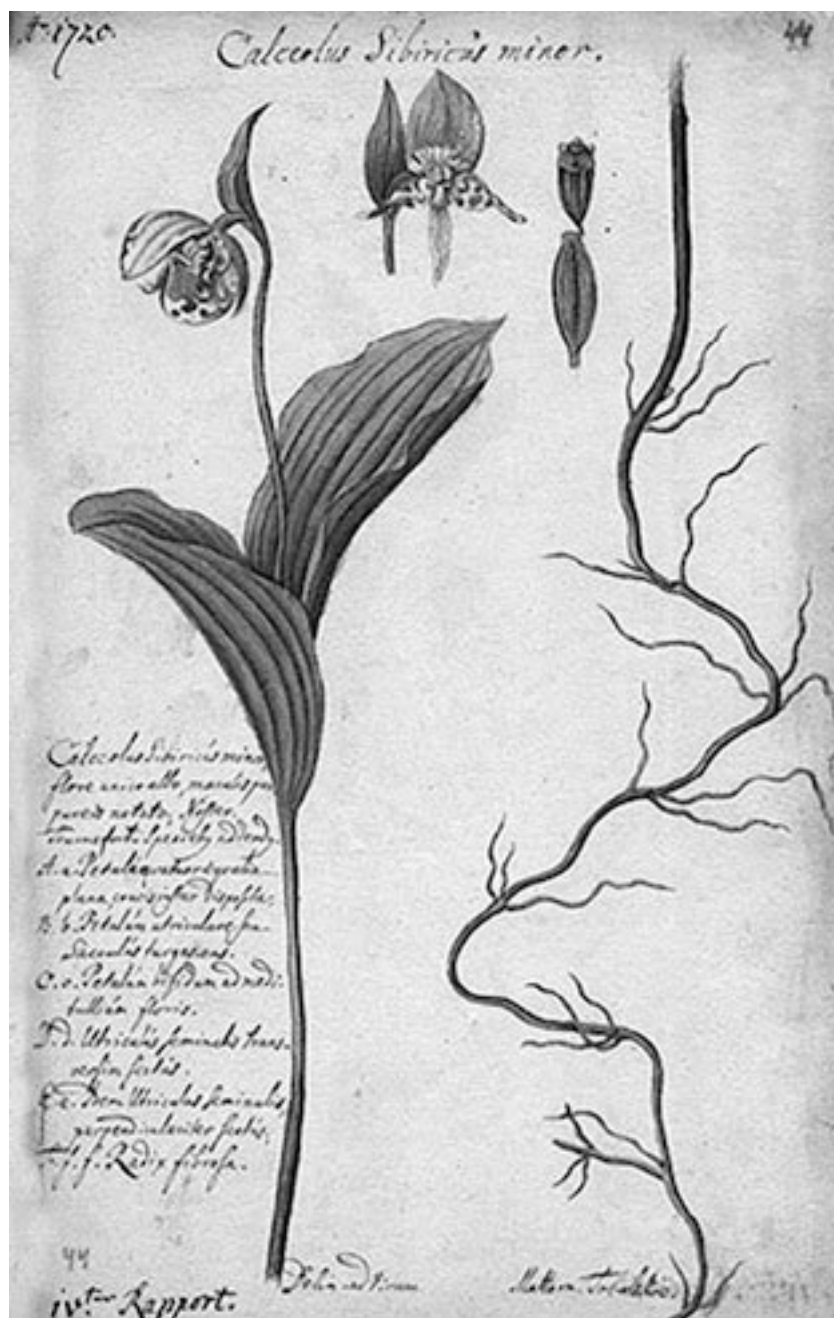 Aº. 1720.
44
Calceolus Sibiricus minor.
Calceolus Sibiricus minor
flore unico albo, maculis pur
pureis notato,
A. a. Petala
plana
B. b. Petalum utriculare seu
Sacculus turgescens.
C. c. Petalum bifidum ad medi-
tullium floris.
D. d. Utriculus seminalis trans-
versim sectus.
E. e. Idem Utriculus seminalis
perpendiculariter sectus.
f. f. Radix fibrosa.
44
ivter Rapport.